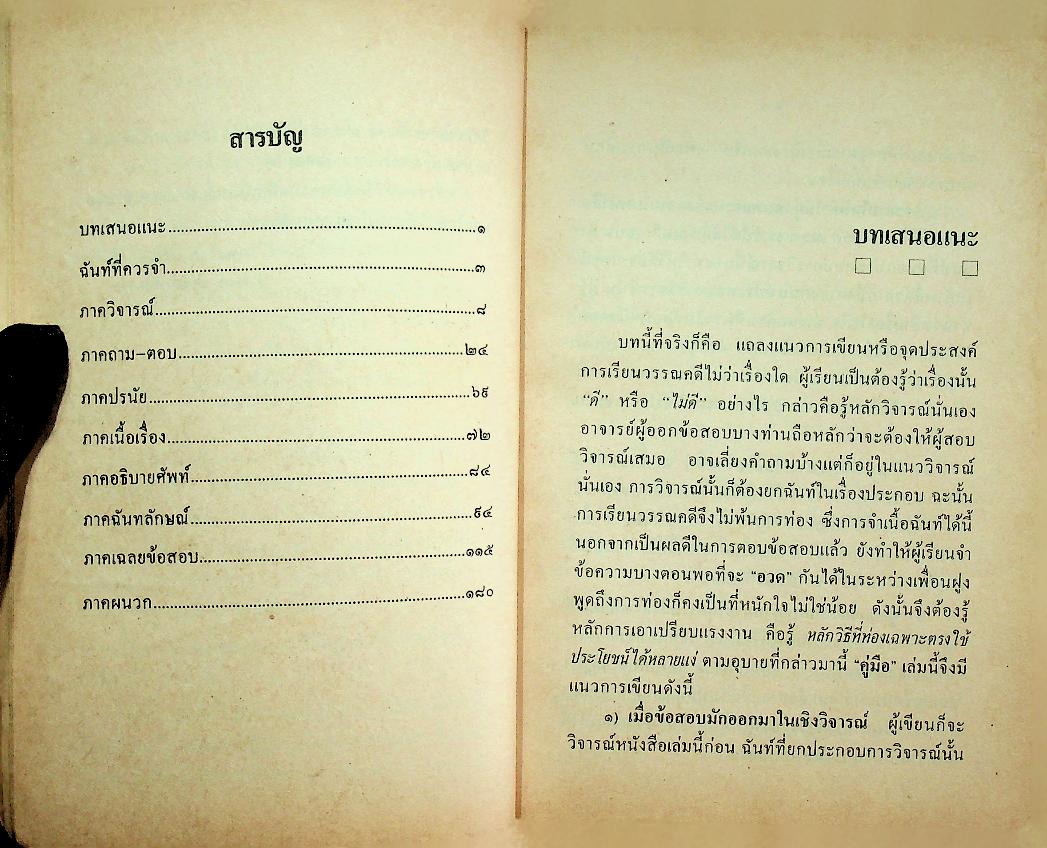 สารบัญ
บทเสนอแนะ....................................................๑
ฉันท์ที่ควรจำ....................................................๓
ภาควิจารณ์....................................................๘
ภาคถาม–ตอบ....................................................๒๔
ภาคปรนัย....................................................๖๙
ภาคเนื้อเรื่อง....................................................๗๒
ภาคอธิบายศัพท์....................................................๘๔
ภาคฉันทลักษณ์....................................................๙๔
ภาคเฉลยข้อสอบ....................................................๑๑๕
ภาคผนวก....................................................๑๘๐
บทเสนอแนะ
บทนี้ที่จริงก็คือ แถลงแนวการเขียนหรือจุดประสงค์
การเรียนวรรณคดีไม่ว่าเรื่องใด ผู้เรียนเป็นต้องรู้ว่าเรื่องนั้น
“ดี” หรือ “ไม่ดี” อย่างไร กล่าวคือรู้หลักวิจารณ์นั่นเอง
อาจารย์ผู้ออกข้อสอบบางท่านถือหลักว่าจะต้องให้ผู้สอบ
วิจารณ์เสมอ อาจเลี่ยงคำถามบ้างแต่ก็อยู่ในแนววิจารณ์
นั่นเอง การวิจารณ์นั้นก็ต้องยกฉันท์ในเรื่องประกอบ ฉะนั้น
การเรียนวรรณคดีจึงไม่พ้นการท่อง ซึ่งการจำเนื้อฉันท์ได้นี้
นอกจากเป็นผลดีในการตอบข้อสอบแล้ว ยังทำให้ผู้เรียนจำ
ข้อความบางตอนพอที่จะ “อวด” กันได้ในระหว่างเพื่อนฝูง
พูดถึงการท่องก็คงเป็นที่หนักใจไม่ใช่น้อย ดังนั้นจึงต้องรู้
หลักการเอาเปรียบแรงงาน คือรู้ หลักวิธีที่ท่องเฉพาะตรงใช้
ประโยชน์ได้หลายแง่ ตามอุบายที่กล่าวมานี้ “คู่มือ” เล่มนี้จึงมี
แนวการเขียนดังนี้
๑) เมื่อข้อสอบมักออกมาในเชิงวิจารณ์ ผู้เขียนก็จะ
วิจารณ์หนังสือเล่มนี้ก่อน ฉันท์ที่ยกประกอบการวิจารณ์นั้น